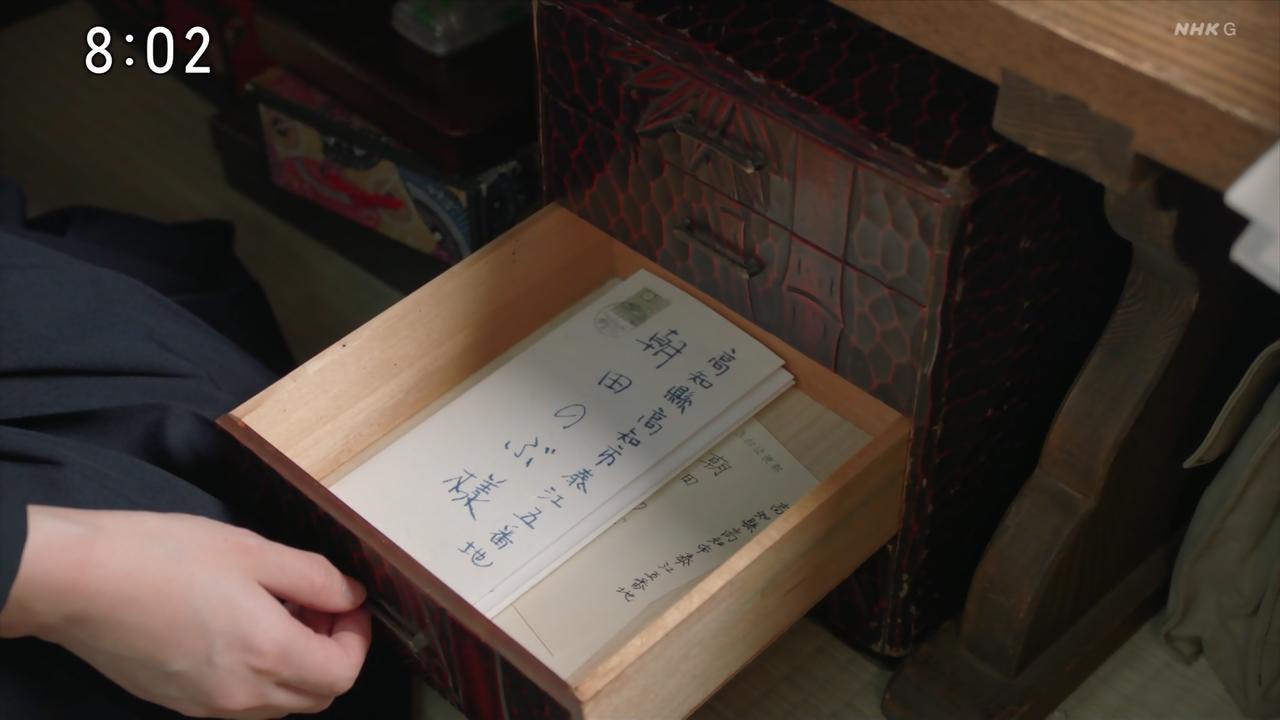 8:02
NHK G
高知縣高知市泰江五番地
朝田のぶ様
高知縣高知市泰江五番地
朝田の